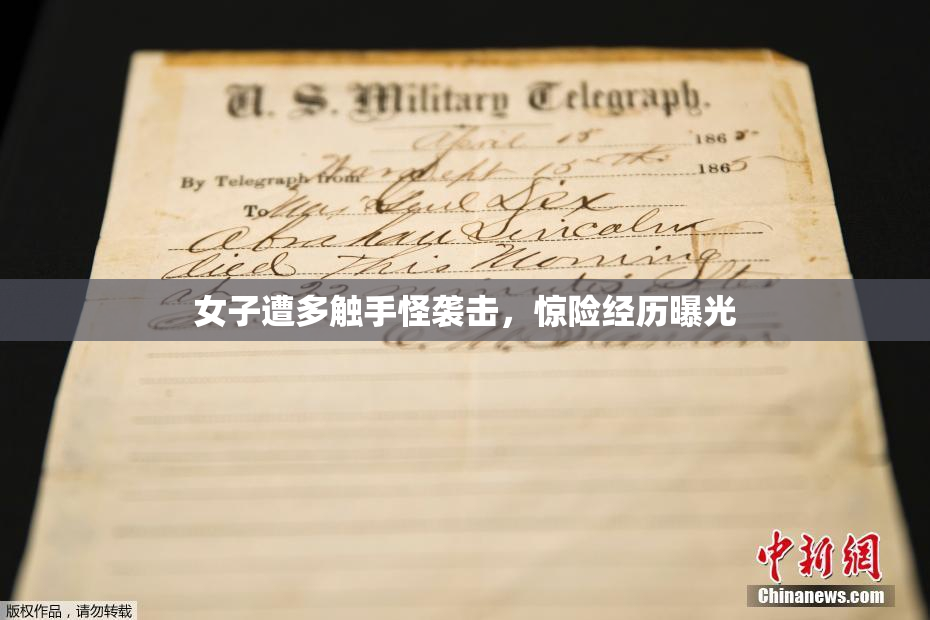 U. S. Military Telegraph.
April 15 1865
By Telegraph from War Dept 15th 1865
To Maj Genl Dix
Abraham Lincoln
died This Morning
at 22 minutes after
女子遭多触手怪袭击，惊险经历曝光
E. M. Stanton
中新网
Chinanews.com
版权作品，请勿转载